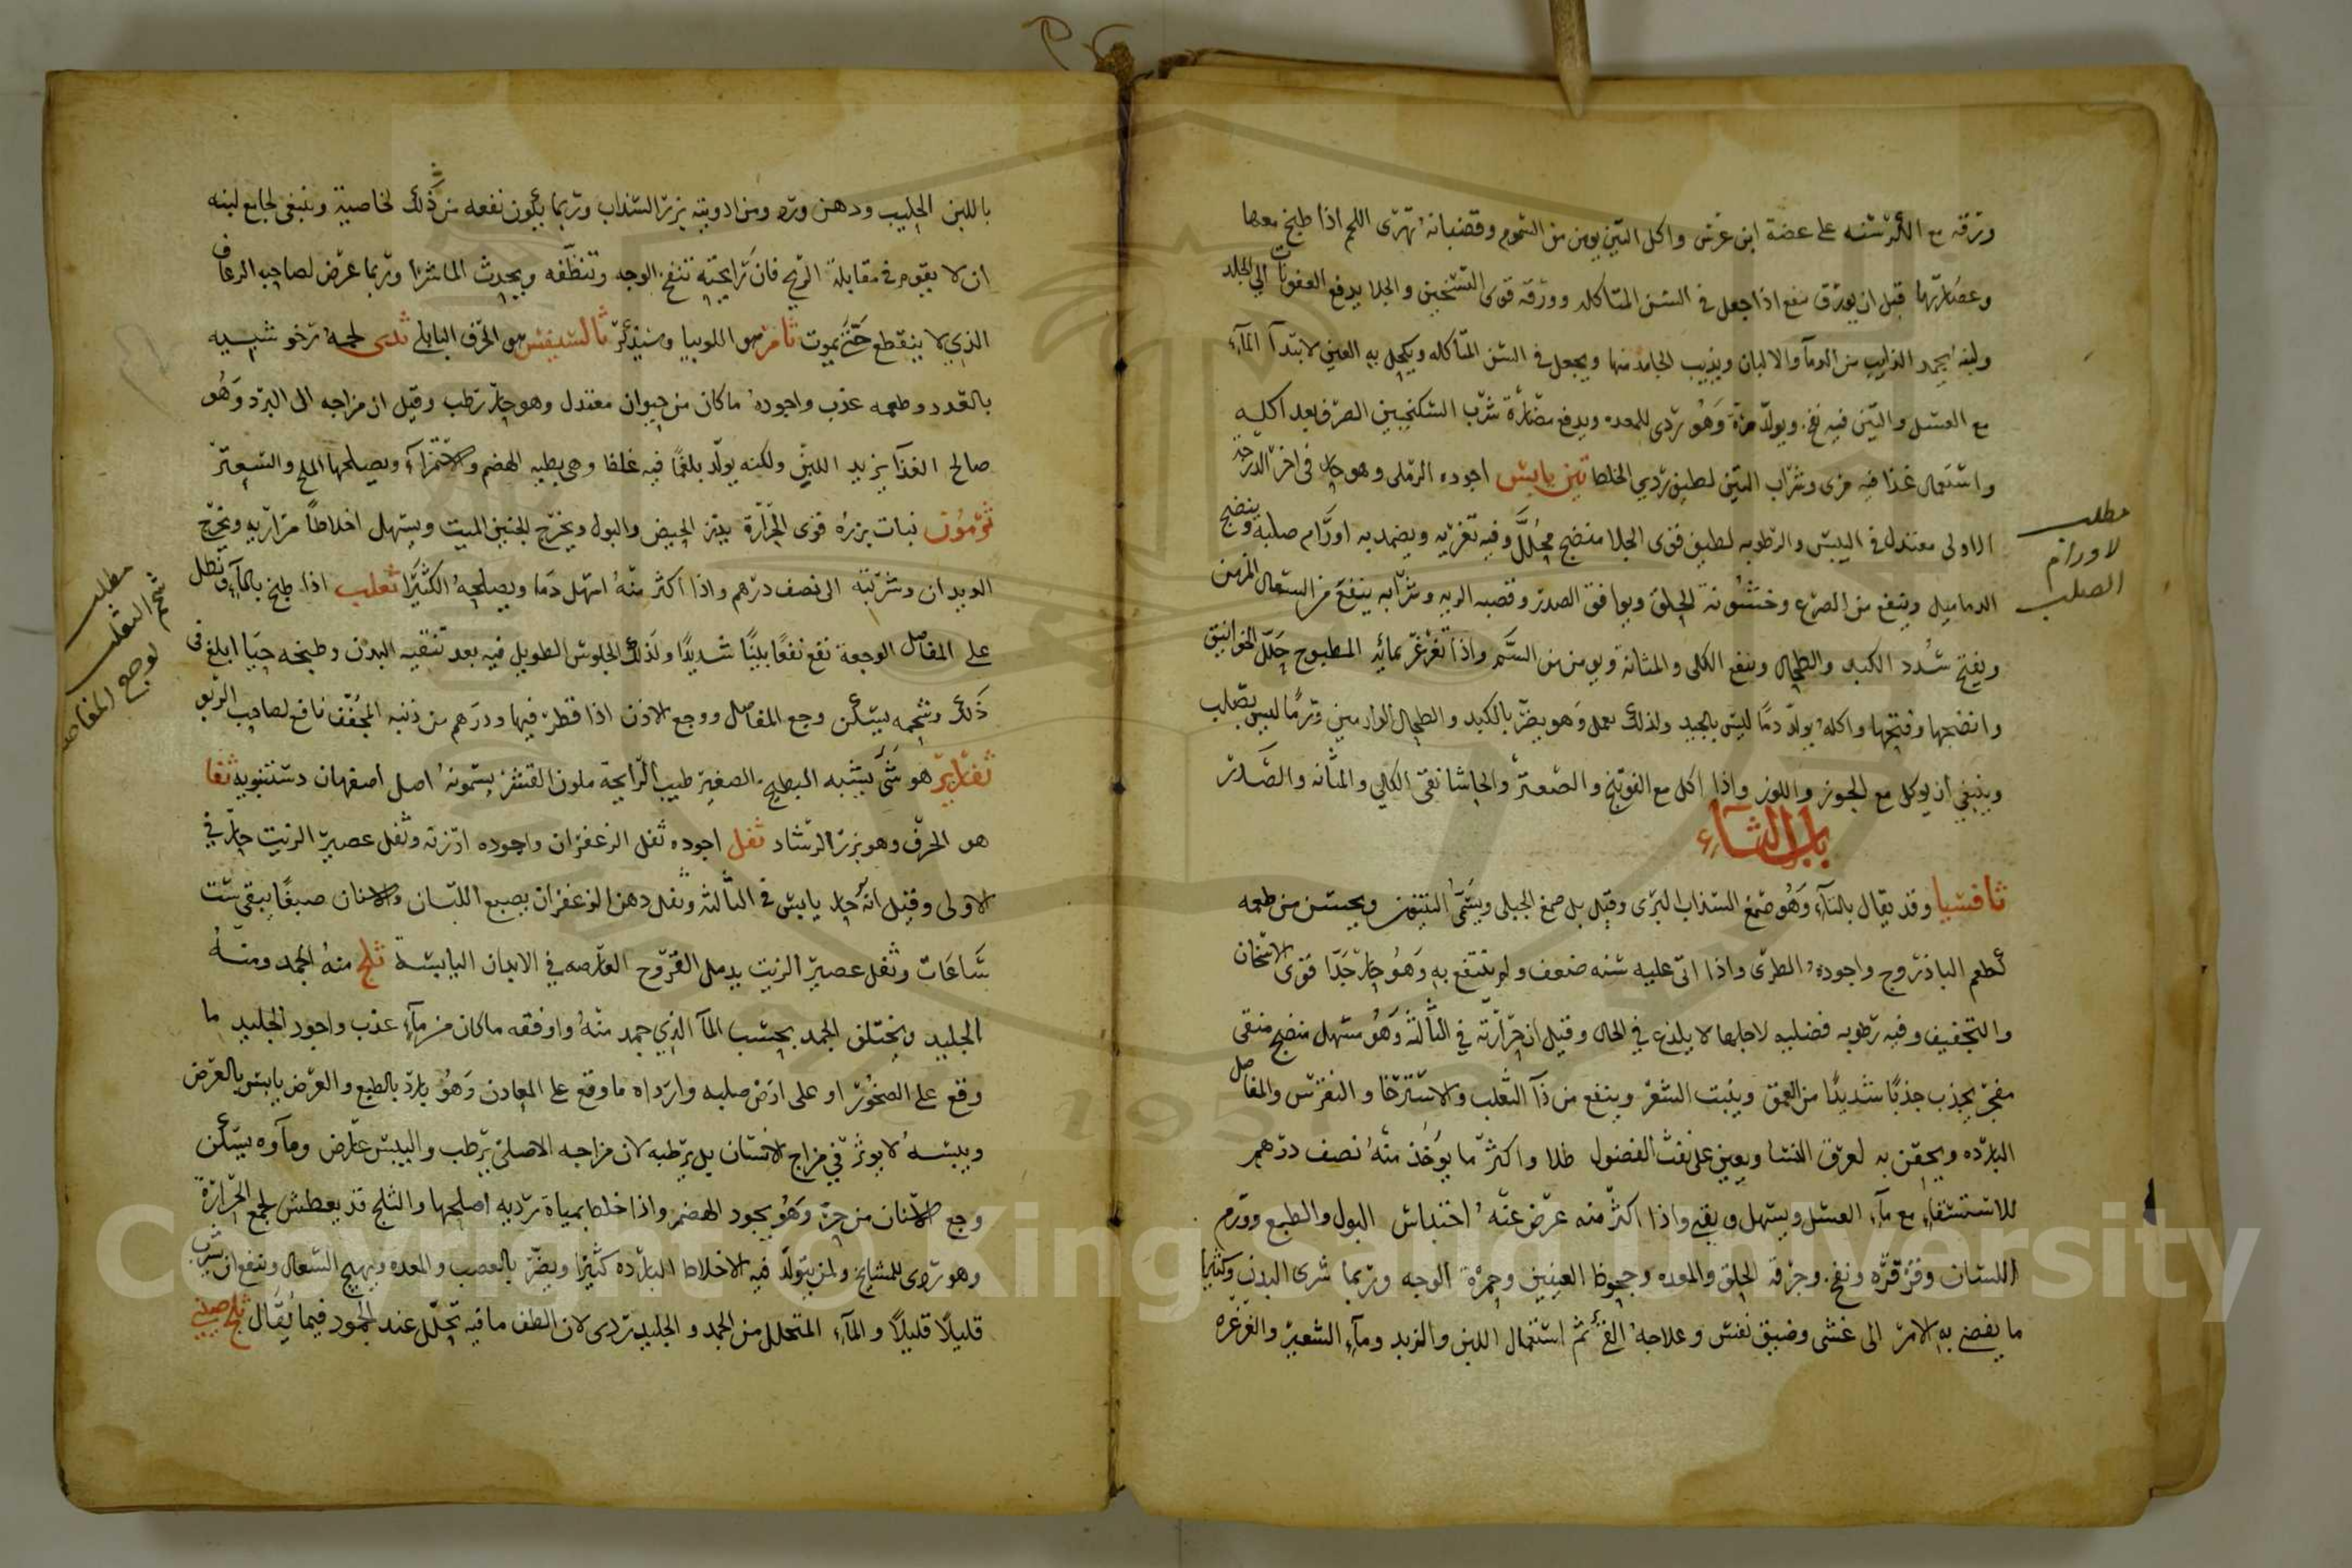 ورقه مع الكرسنه على عضة ابن عرس واكل التين يومن من السموم وقضبانه تهرى اللحم اذا طبخ معها
وعصارتها قبل ان يورق ينفع اذا جعل في السن المتاكله وورقه قوى التسخين والجلا يدفع العفونات الى الجلد
ولبنه يجمد الذايب من الدما والالبان ويذيب الجامد منها ويجعل في السن المتاكله ويكحل به العين لابتدآ المآء
مع العسل والتين فيه نفخ ويولد مرة وهو ردى للمعده ويدفع مضارة شرب السكنجبين الصرف بعد اكله
واستعمال غذا فيه مرى وشراب التين لطيف ردى الخلط تين يابس اجوده الرملى وهو حار فى اخر الدرجه
الاولى معتدل في اليبس والرطوبه لطيف قوى الجلا منضج محلل وفيه تغريه ويضمد به اورام صلبه وينضج
الدماميل وينفع من الصرع وخشونة الحلق ويوافق الصدر وقصبه الريه وشرابه ينفع من السعال المزمن
ويفتح سدد الكبد والطحال وينفع الكلى والمثانة ويومن من السم واذا تغرغر بمائه المطبوح حلل الخوانيق
وانضجها وفتحها واكله يولد دما ليس بالجيد ولذلك يقمل وهو يضر بالكبد والطحال الوارمين وورما ليس بصلب
وينبغي ان يوكل مع الجوز واللوز واذا اكل مع الفوتنج والصعتر والحاشا نقى الكلى والمثانه والصدر
باب الثاء
ثافسيا وقد يقال بالتآء وهو صمغ السذاب البرى وقيل بل صمغ الجبلى ويسمى الينتون ويحسن من طعمه
كطعم الباذروج واجوده الطرى واذا اتى عليه سنه ضعف ولم ينتفع به وهو حار جدا قوى الاسخان
والتجفيف وفيه رطوبه فضليه لاجلها لا يلذع في الحال وقيل ان حرارته في الثالثة وهو مسهل منضج منقى
مفجر يجذب جذبا شديدا من العمق وينبت الشعر وينفع من دآ الثعلب والاسترخا والنقرس والمفاصل
البارده ويحقن به لعرق النسا ويعين على نفث الفضول طلا واكثر ما يوخذ منه نصف درهم
للاستسقاء مع مآء العسل ويسهل ويقى واذا اكثر منه عرض عنه احتباس البول والطبع وورم
اللسان وقرقره ونفخ وحرقة الحلق والمعده وجحوظ العينين وحمرة الوجه وربما شرى البدن وكثيرا
ما يفضي به الامر الى غشى وضيق نفس وعلاجه القئ ثم استعمال اللبن والزبد ومآء الشعير والغرغره
مطلب
لاورام
الصلب
باللبن الحليب ودهن ورد ومن ادويته بزر السذاب وربما يكون نفعه من ذلك لخاصية وينبغى لجامع لبنه
ان لا يقوم في مقابلة الريح فان رايحته تنفخ الوجه وتنطفه ويحدث الماشرا وربما عرض لصاحبه الرعاف
الذي لا ينقطع حتى يموت ثامر هو اللوبيا وسيذكر ثالسفيس هو الحرف البابلى ثدى لحمه رخو شبيه
بالغدد وطعمه عذب واجوده ما كان من حيوان معتدل وهو حار رطب وقيل ان مزاجه الى البرد وهو
صالح الغذآ يزيد اللبن ولكنه يولد بلغما فيه غلظ وهى بطيه الهضم والاستمرآء ويصلحها الملح والسعتر
ثومون نبات بزره قوى الحرارة يدر الحيض والبول ويخرج الجنين الميت ويسهل اخلاطا مراريه ويخرج
الديدان وشربته الى نصف درهم واذا اكثر منه اسهل دما ويصلحه الكثيرا ثعلب اذا طبخ بالمآء وتطل
على المفاصل الوجعة نفع نفعا بينا شديدا وكذلك الجلوس الطويل فيه بعد تنقيه البدن وطبخه حيا ابلغ فى
ذلك وشحمه يسكن وجع المفاصل ووجع الاذن اذا قطر فيها ودرهم من ذنبه المجفف نافع لصاحب الربو
هو شئ يشبه البطيخ الصغير طيب الرايحة ملون القشر يسمونه اصل اصفهان دستنبويه ثفا
هو الحرف وهو بزر الرشاد ثفل اجوده ثفل الزعفران واجوده ارزنه وثفل عصير الزيت حار في
الاولى وقيل انه حار يابس في الثالثه وثفل دهن الزعفران يصبغ اللسان والاسنان صبغا يبقى ست
ساعات وثفل عصير الزيت يدمل القروح العارضه في الابدان اليابسة ثلج منه الجمد ومنه
الجليد ويختلف الجمد بحسب المآ الذي جمد منه واوفقه ما كان من مآء عذب واجود الجليد ما
وقع على الصخور او على ارض صلبه وارداه ما وقع على المعادن وهو بارد بالطبع والعرض يابس بالعرض
ويبسه لا يوثر في مزاج الانسان بل يرطبه لان مزاجه الاصلى رطب واليبس عارض ومآوه يسكن
وجع الاسنان من حر وهو يجود الهضم واذا خلط بمياة رديه اصلحها والثلج قد يعطش لجمع الحرارة
وهو ردى للمشايخ ولمن يتولد فيه الاخلاط البارده كثيرا ويضر بالعصب والمعده ويهيج السعال وينفع ان يشرب
قليلا قليلا والمآء المتحلل من الجمد والجليد ردى لان الطف ما فيه تحلل عند الجمود فيما يقال ثلج صينى
مطلب
شحم الثعلب
لوجع المفاصل
Copyright © King Saud University
1957